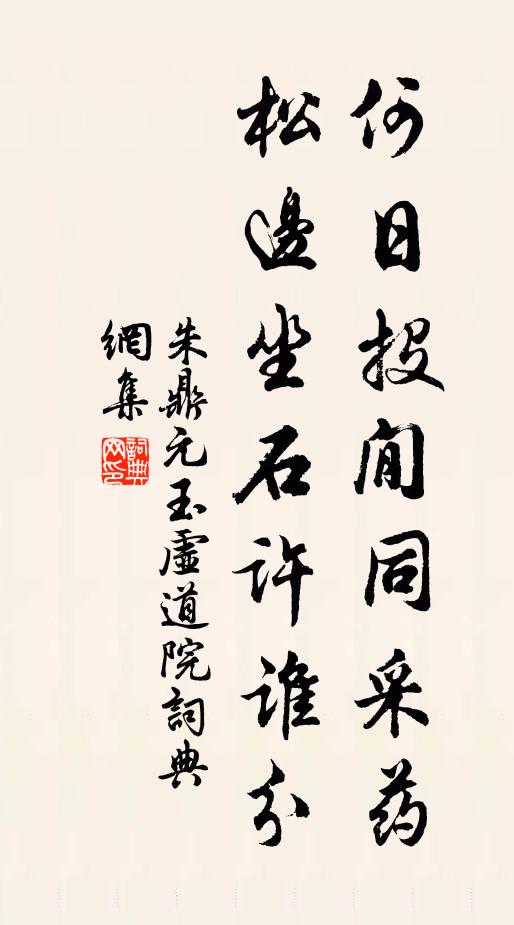 何日投閒同采药
松邊坐石許誰分
朱鼎元玉虛道院詞典
網集
詞典网印